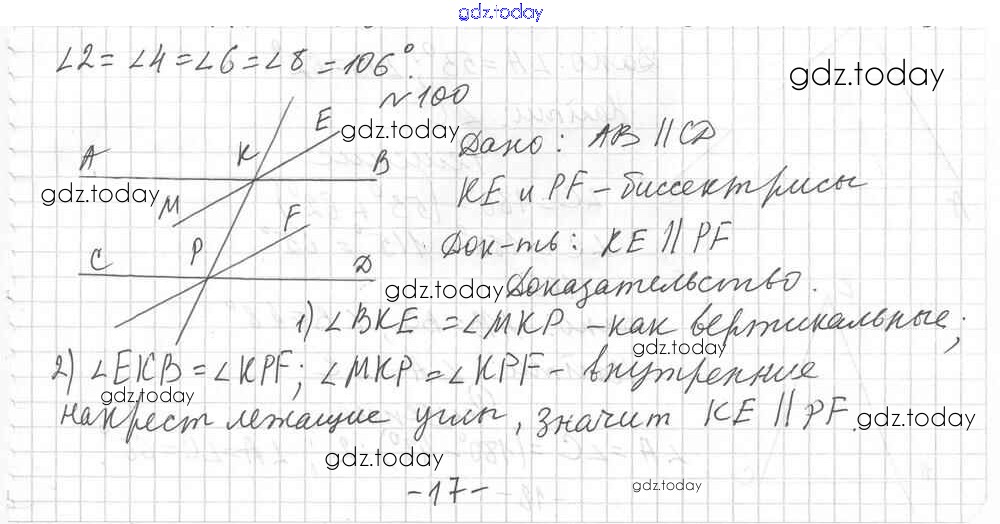 gdz.today
∠2 = ∠4 = ∠6 = ∠8 = 106°.
gdz.today
№ 100
E
gdz.today
Дано: AB || CD
A
K
B
KE и PF - биссектрисы
gdz.today
M
F
Док-ть: KE || PF
C
P
D
gdz.today
Доказательство.
1) ∠BKE = ∠MKP - как вертикальные;
gdz.today
2) ∠EKB = ∠KPF; ∠MKP = ∠KPF - внутренние
gdz.today
накрест лежащие углы, значит KE || PF.
gdz.today
gdz.today
-17-
gdz.today